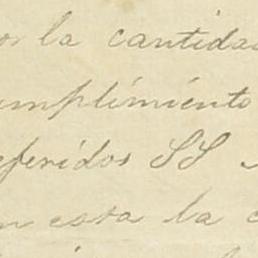 or la cantidad
umplimiento
eferidos SS
n esta la c